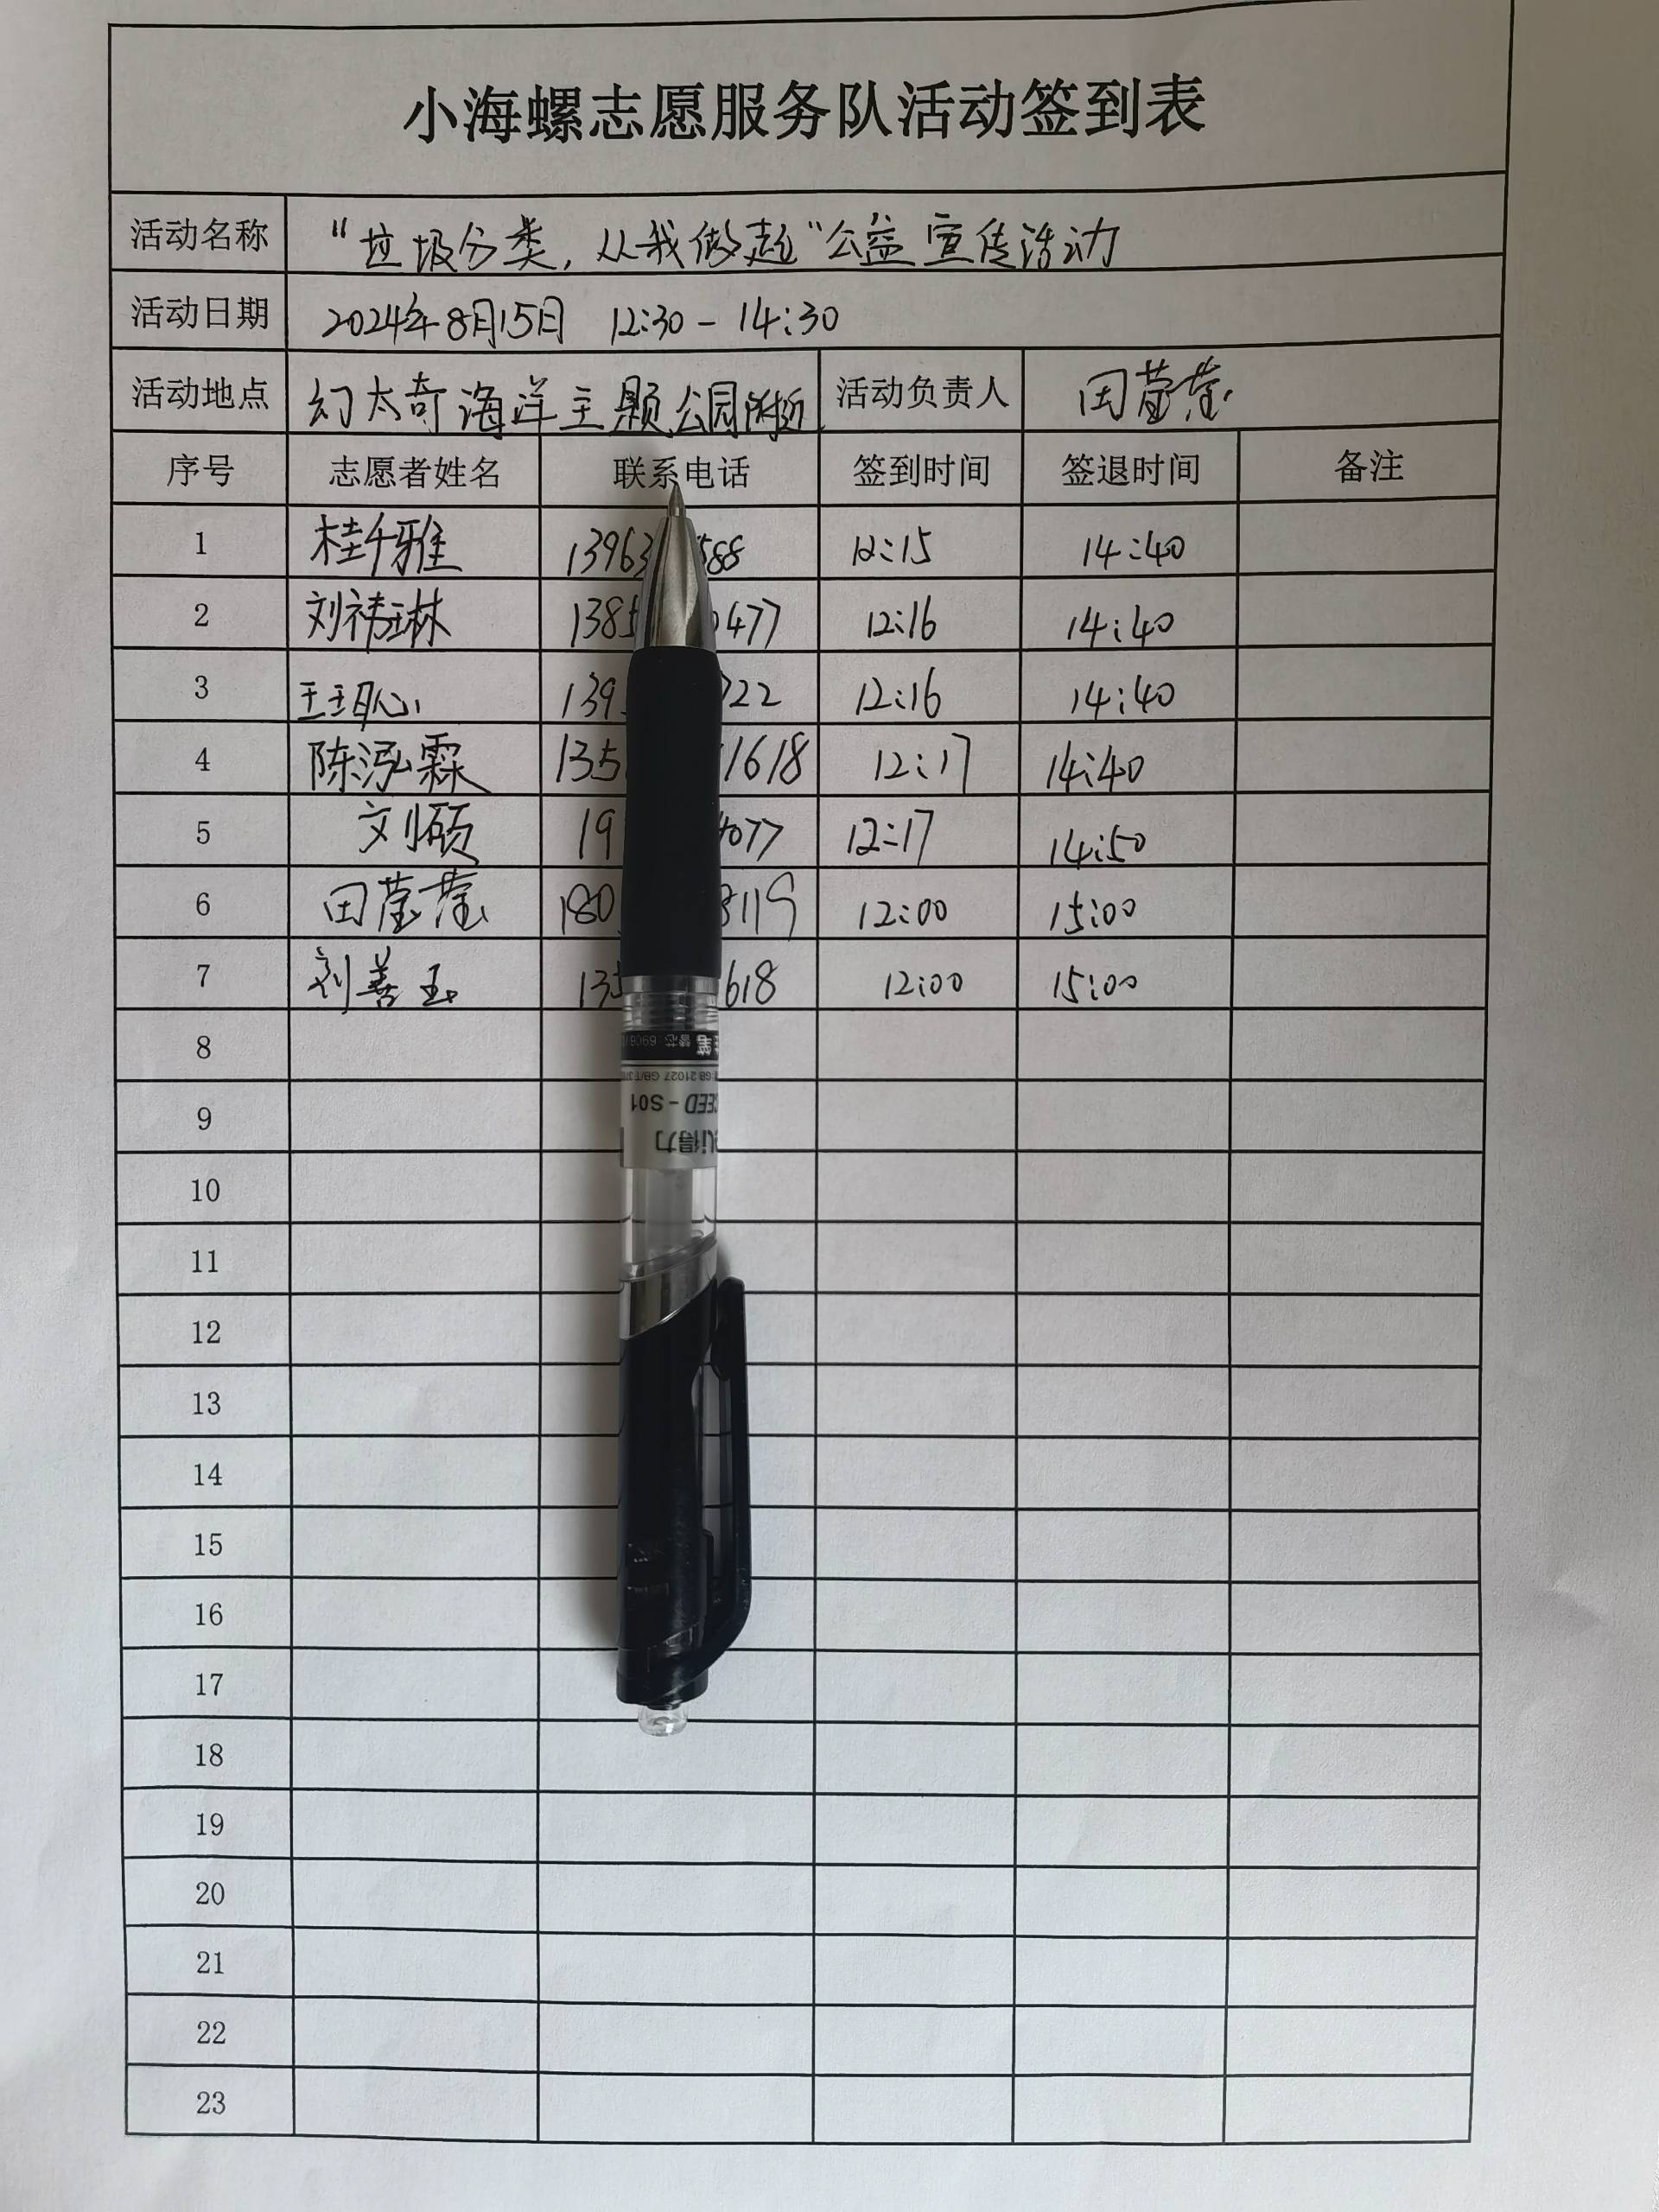 小海螺志愿服务队活动签到表
活动名称 "垃圾分类,从我做起"公益宣传活动
活动日期 2024年8月15日 12:30-14:30
活动地点 幻太奇海洋主题公园附近 活动负责人 田莹莹
序号 志愿者姓名 联系电话 签到时间 签退时间 备注
1 桂千雅 13963 588 12:15 14:40
2 刘祎琳 1385 477 12:16 14:40
3 139 722 12:16 14:40
4 陈泓霖 135 1618 12:17 14:40
5 刘硕 19 4077 12:17 14:50
6 田莹莹 180 3119 12:00 15:00
7 刘善玉 135 618 12:00 15:00
8
9
10
11
12
13
14
15
16
17
18
19
20
21
22
23
笔 替芯:6906
GB 21027 GB/T
CEED-S01
得力